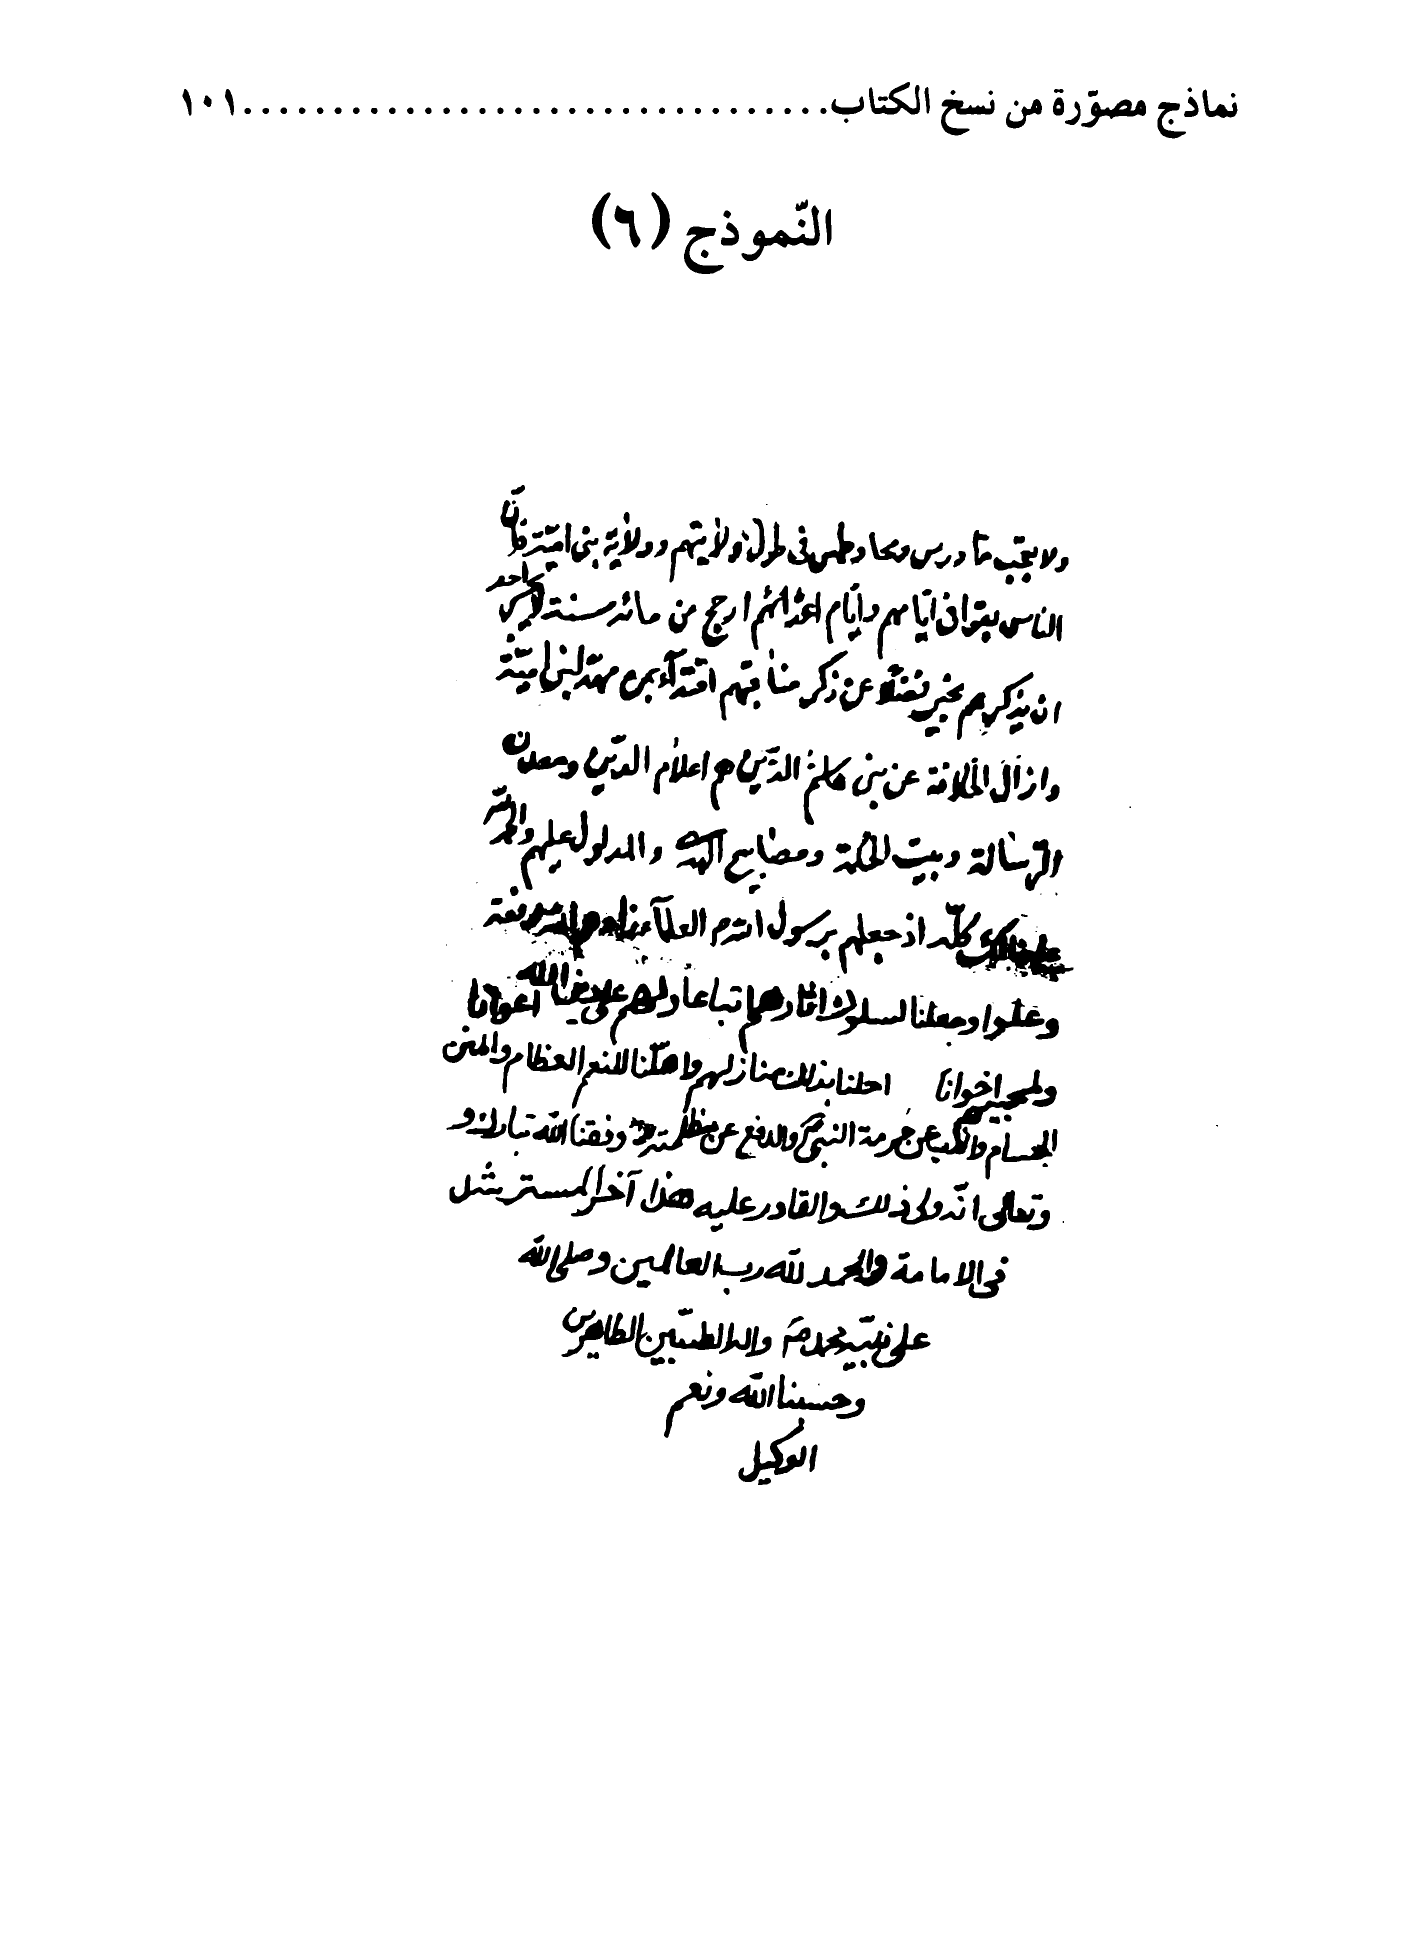 نماذج مصوّرة من نسخ الكتاب................................. ١٠١
النّموذج (٦)
ولا يجب ما درس ومحا وطمس فى طول ولايتهم وولاية بنى اميّة فانّ
الناس بقوا فى ايّامهم وايّام اعدائهم ارجح من مائة سنة ليس احد
ان يذكرهم بخير فضلًا عن ذكر مناقبهم اقتداء بمن مهّد لبنى اميّة
وازال الخلافة عن بنى هاشم الذين هم اعلام الدّين ومعدن
الرّسالة وبيت الحكمة ومصابيح الهدى والمدلول عليهم والحمد لله
على ذلك كلّه اذ جعلهم برسول الله العلماء زادهم الله رفعة
وعلوا وجعلنا لسلوك اثارهم اتباعا ولهم على دين الله اعوانا
ولمحبيهم اخوانا احلنا بذلك منازلهم واهّلنا للنعم العظام والمنن
الجسام والذب عن حرمة النبى والدفع عن وفقنا الله تبارك و
وتعالى انّه ولى ذلك والقادر عليه هذا آخر المسترشد
فى الامامة والحمد لله رب العالمين وصلى الله
على نبيّه محمد واله الطيبين الطاهرين
وحسبنا الله ونعم
الوكيل